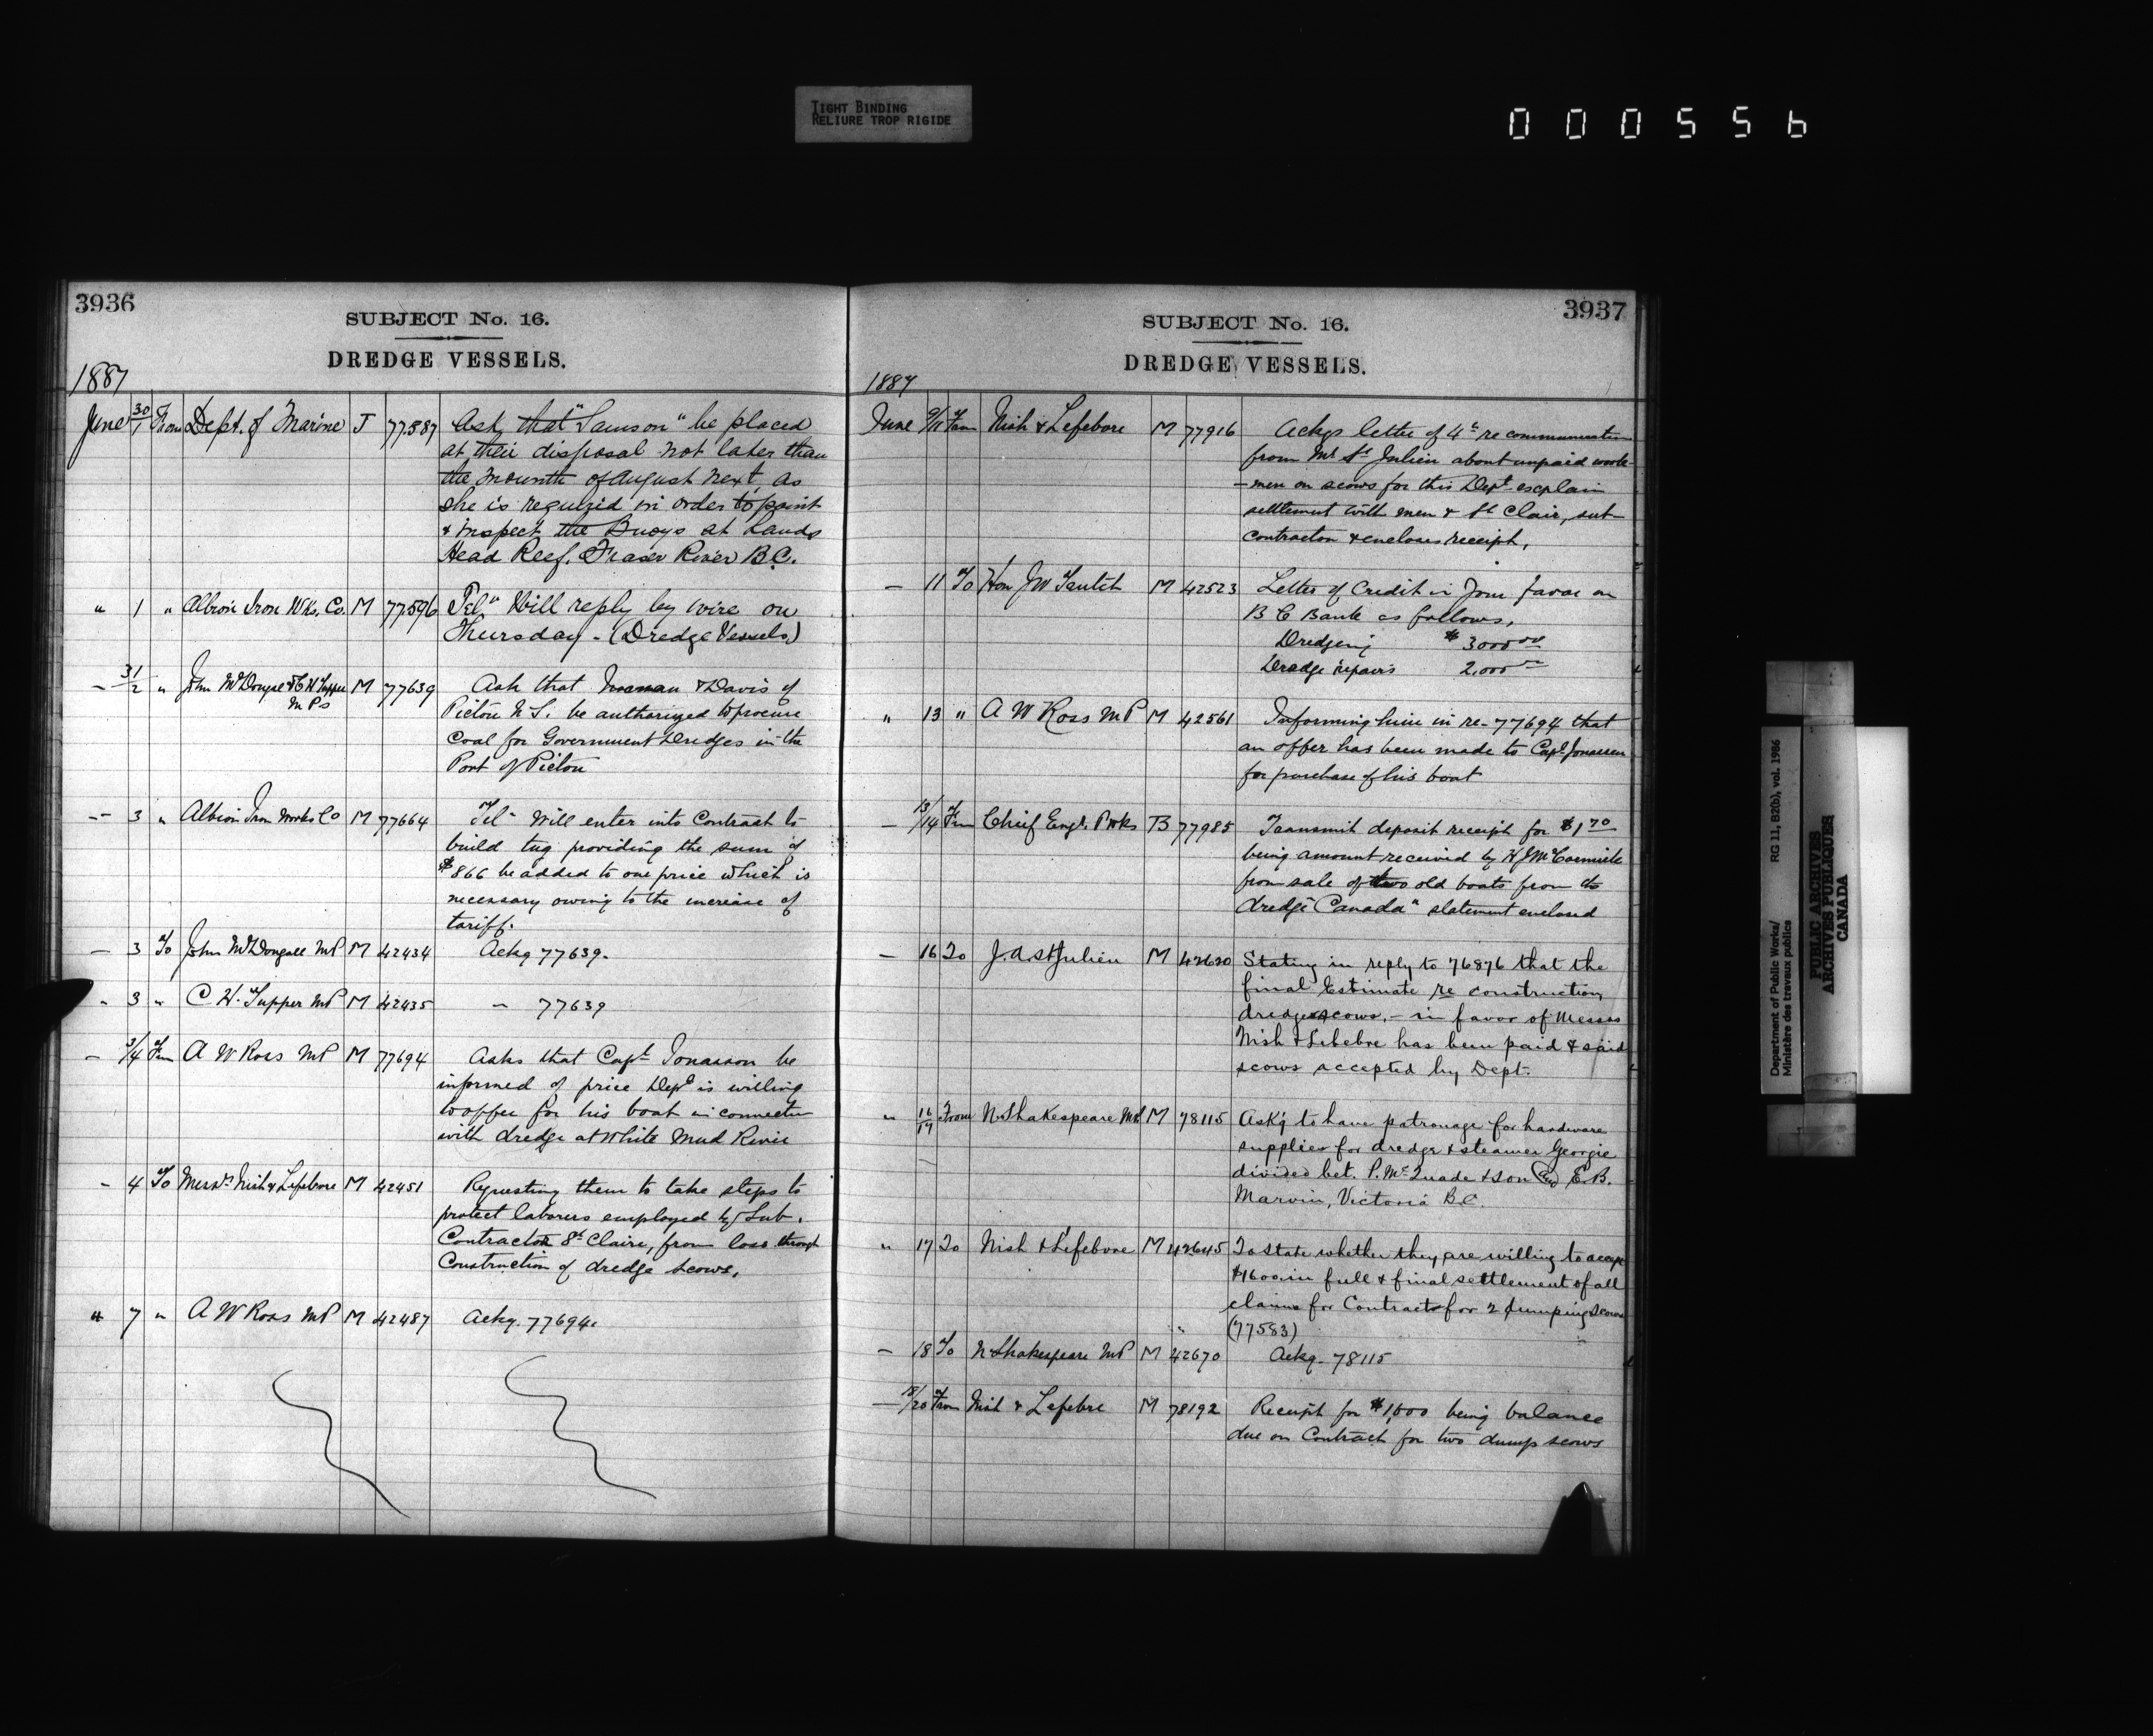 TIGHT BINDING
RELIURE TROP RIGIDE
000556
3936
SUBJECT No. 16.
DREDGE VESSELS.
1887
June 30/1 From Dept. of Marine J 77587 Ask that "Samson" be placed
at their disposal not later than
the mounth of August next, as
she is required in order to paint
& inspect the Buoys at Sands
Head Reef, Fraser River B.C.
" 1 " Albion Iron Wks. Co. M 77596 Tel" Will reply by wire on
Thursday - (Dredge Vessels)
- 31/2 " John McDougal & C H Tupper M 77639 Ask that & Davis of
M Ps
Pictou N.S. be authorized to procure
Coal for Government Dredges in the
Port of Pictou
-- 3 " Albion Iron Works Co M 77664 Tel- Will enter into Contract to
build tug providing the sum of
$866 be added to our price which is
necessary owing to the increase of
tariff.
- 3 To John McDougall MP M 42434 Ackg 77639.
" 3 " C H. Tupper MP M 42435 - 77639
- 3/4 Frm A W Ross MP M 77694 Asks that Capt Jonasson be
informed of price Dept is willing
to offer for his boat in connection
with dredge at White Mud River
- 4 To Messrs Nish & Lefebvre M 42451 Requesting them to take steps to
protect laborers employed by Sub.
Contractor St Claire, from loss through
Construction of dredge scows.
" 7 " A W Ross MP M 42487 Ackg. 77694.
3937
SUBJECT No. 16.
DREDGE VESSELS.
1887
June 9/11 From Nish & Lefebvre M 77916 Ackgs letter of 4th re communication
from Mr St Julien about unpaid work-
-men on scows for this Dept explain
settlement with men & St Clair, sub-
contractor & encloses receipt,
- 11 To Hon J W Trutch M 42523 Letter of Credit in your favor on
B C Bank as follows,
Dredging $3000 00
Dredge repairs 2,000 00
" 13 " A W Ross MP M 42561 Informing him in re- 77694 that
an offer has been made to Capt. Jonassen
for purchase of his boat
- 13/14 Frm Chief Engr. P Wks B 77985 Transmit deposit receipt for $1 70
being amount received by H J McCormick
from sale of two old boats from the
dredge "Canada" statement enclosed
- 16 To J. A. St Julien M 42620 Stating in reply to 76876 that the
final Estimate re construction
dredge scows, - in favor of Messrs
Nish & Lefebre has been paid & said
scows accepted by Dept.
" 16/17 From N. Shakespeare MP M 78115 Ask'g to have patronage for hardware
supplies for dredge & steamer Georgie
divided bet. P. McQuade & Son and E. B.
Marvin, Victoria B.C.
" 17 To Nish & Lefebvre M 42645 To state whether they are willing to accept
$1600 in full & final settlement of all
claims for Contract for 2 dumping scows
(77583)
- 18 To N Shakespeare MP M 42670 Ackg. 78115
- 18/20 From Nish & Lefebre M 78192 Receipt for $1,600 being balance
due on Contract for two dump scows
Department of Public Works/
Ministère des travaux publics
RG 11, B2(b), vol. 1986
PUBLIC ARCHIVES
ARCHIVES PUBLIQUES
CANADA